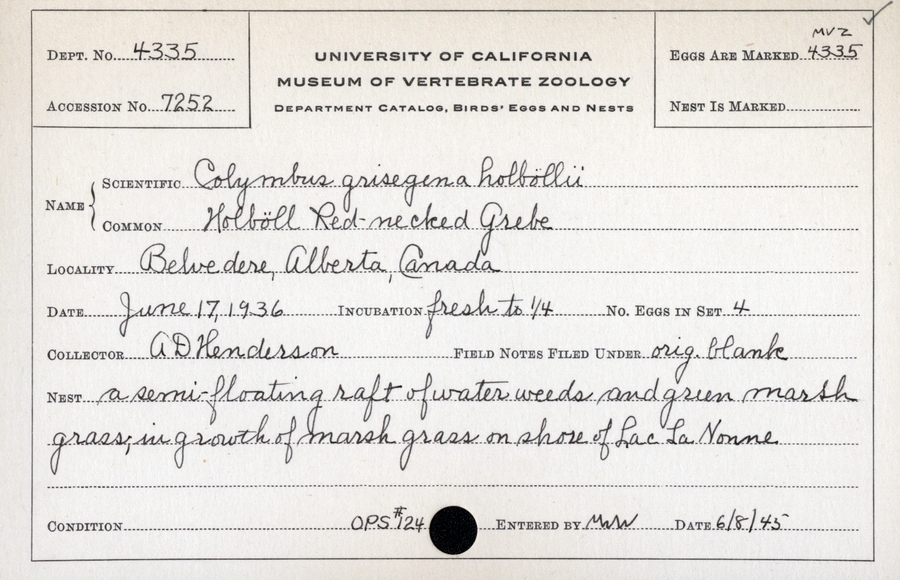 DEPT. No. 4335
UNIVERSITY OF CALIFORNIA
MUSEUM OF VERTEBRATE ZOOLOGY
DEPARTMENT CATALOG, BIRDS' EGGS AND NESTS
MVZ
EGGS ARE MARKED 4335
ACCESSION No. 7252
NEST IS MARKED
NAME { SCIENTIFIC Colymbus grisegena holböllii
COMMON Holböll Red-necked Grebe
LOCALITY Belvedere, Alberta, Canada
DATE June 17, 1936 INCUBATION fresh to 1/4 No. EGGS IN SET 4
COLLECTOR A D Henderson FIELD NOTES FILED UNDER orig. blank
NEST a semi-floating raft of water weeds and green marsh
grass; in growth of marsh grass on shore of Lac La Nonne
CONDITION OPS #124 ENTERED BY DATE 6/8/45